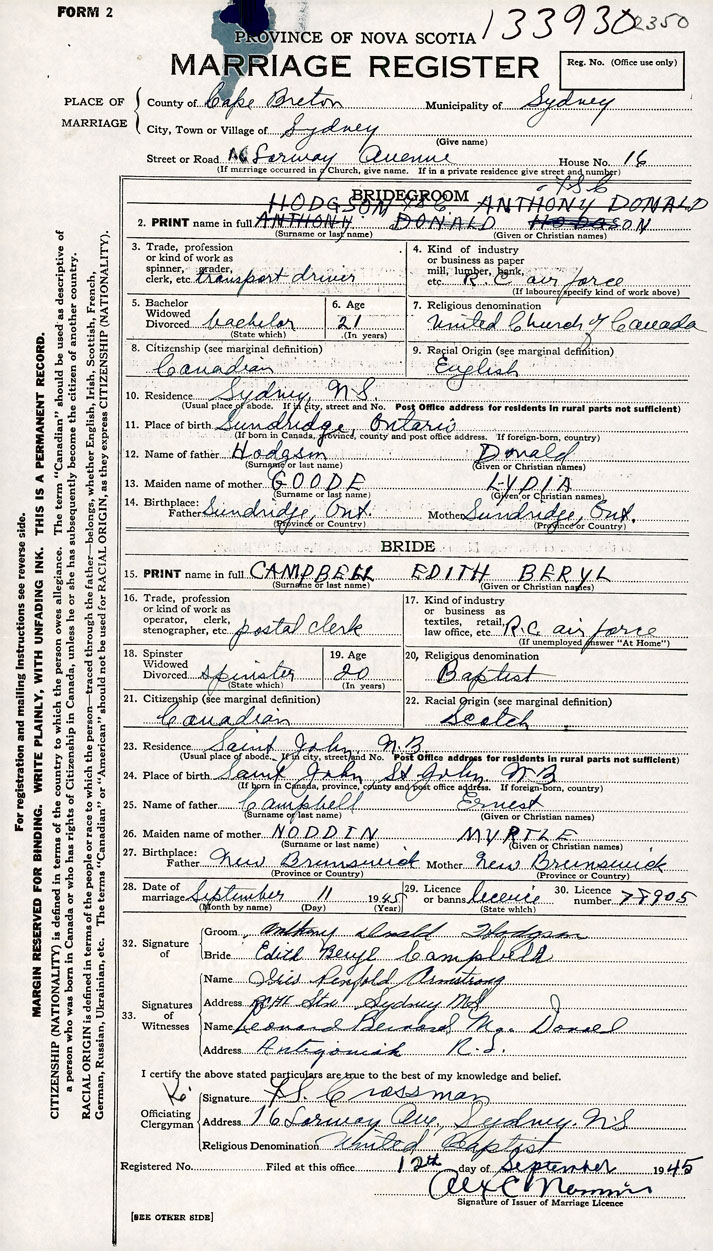 FORM 2
133930
2350
PROVINCE OF NOVA SCOTIA
MARRIAGE REGISTER
Reg. No. (Office use only)
PLACE OF MARRIAGE
County of Cape Breton Municipality of Sydney
City, Town or Village of Sydney
(Give name)
Street or Road 16 Lorway Avenue House No. 16
(If marriage occurred in a Church, give name. If in a private residence give street and number)
BRIDEGROOM
HODGSON ANTHONY DONALD
2. PRINT name in full ANTHONY DONALD HODGSON
(Surname or last name) (Given or Christian names)
3. Trade, profession or kind of work as spinner, grader, clerk, etc. transport driver
4. Kind of industry or business as paper mill, lumber, bank, etc. R.C. air force
(If labourer specify kind of work above)
5. Bachelor Widowed Divorced bachelor
(State which)
6. Age 21
(In years)
7. Religious denomination
United Church of Canada
8. Citizenship (see marginal definition)
Canadian
9. Racial Origin (see marginal definition)
English
10. Residence Sydney, N.S.
(Usual place of abode. If in city, street and No. Post Office address for residents in rural parts not sufficient)
11. Place of birth Sundridge, Ontario
(If born in Canada, province, county and post office address. If foreign-born, country)
12. Name of father Hodgson Donald
(Surname or last name) (Given or Christian names)
13. Maiden name of mother GOODE LYDIA
(Surname or last name) (Given or Christian names)
14. Birthplace: Father Sundridge, Ont. Mother Sundridge, Ont.
(Province or Country) (Province or Country)
BRIDE
15. PRINT name in full CAMPBELL EDITH BERYL
(Surname or last name) (Given or Christian names)
16. Trade, profession or kind of work as operator, clerk, stenographer, etc. postal clerk
17. Kind of industry or business as textiles, retail, law office, etc. R.C. air force
(If unemployed answer "At Home")
18. Spinster Widowed Divorced spinster
(State which)
19. Age 20
(In years)
20. Religious denomination
Baptist
21. Citizenship (see marginal definition)
Canadian
22. Racial Origin (see marginal definition)
Scotch
23. Residence Saint John, N.B
(Usual place of abode. If in city, street and No. Post Office address for residents in rural parts not sufficient)
24. Place of birth Saint John St John N.B
(If born in Canada, province, county and post office address. If foreign-born, country)
25. Name of father Campbell Ernest
(Surname or last name) (Given or Christian names)
26. Maiden name of mother NODDIN MYRTLE
(Surname or last name) (Given or Christian names)
27. Birthplace: Father New Brunswick Mother New Brunswick
(Province or Country) (Province or Country)
28. Date of marriage September 11 1945
(Month by name) (Day) (Year)
29. Licence or banns licence
(State which)
30. Licence number 78905
32. Signature of
Groom Anthony Donald Hodgson
Bride Edith Beryl Campbell
33. Signatures of Witnesses
Name Iris Penfold Armstrong
Address Stn Sydney NS
Name Leonard Bernard Donald
Address Antigonish N.S.
I certify the above stated particulars are true to the best of my knowledge and belief.
Officiating Clergyman
Signature F.S. Crossman
Address 16 Lorway Ave, Sydney, N.S
Religious Denomination United Baptist
Registered No. Filed at this office 12th day of September 1945
Alex C
Signature of Issuer of Marriage Licence
[SEE OTHER SIDE]
For registration and mailing instructions see reverse side.
MARGIN RESERVED FOR BINDING. WRITE PLAINLY, WITH UNFADING INK. THIS IS A PERMANENT RECORD.
CITIZENSHIP (NATIONALITY) is defined in terms of the country to which the person owes allegiance. The term "Canadian" should be used as descriptive of
a person who was born in Canada or who has rights of Citizenship in Canada, unless he or she has subsequently become the citizen of another country.
RACIAL ORIGIN is defined in terms of the people or race to which the person—traced through the father—belongs, whether English, Irish, Scottish, French,
German, Russian, Ukrainian, etc. The terms "Canadian" or "American" should not be used for RACIAL ORIGIN, as they express CITIZENSHIP (NATIONALITY).